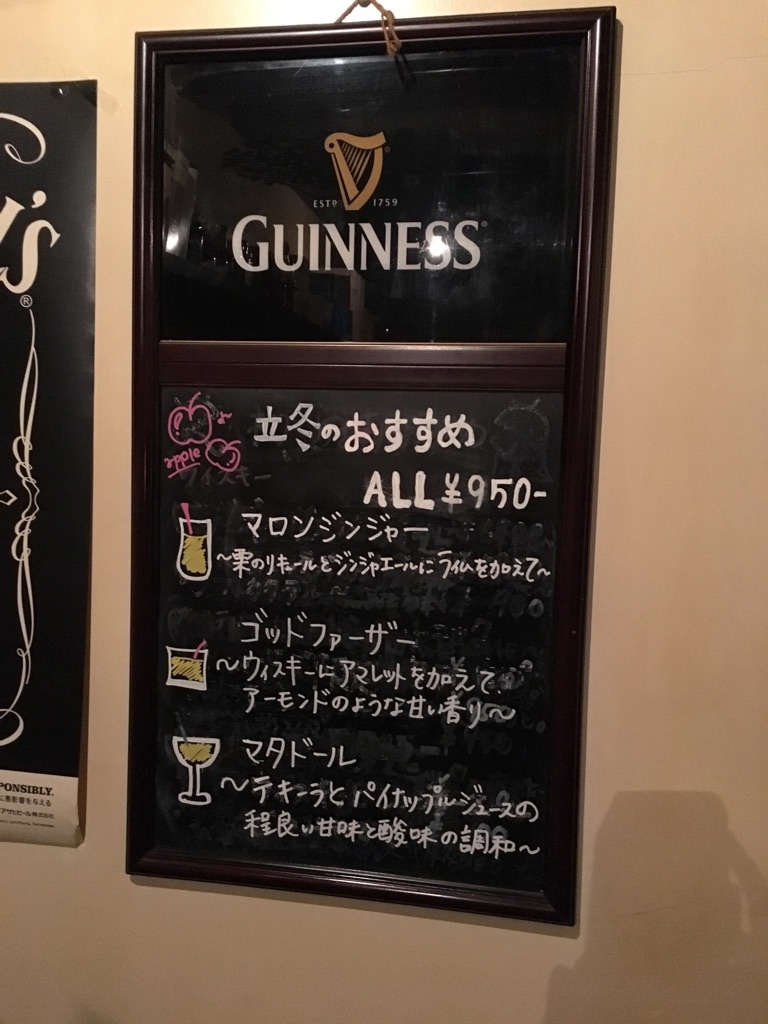 ESTD 1759
GUINNESS
apple
立冬のおすすめ
ウィスキー
ALL ¥950-
マロンジンジャー
～栗のリキュールとジンジャエールにライムを加えて～
ゴッドファーザー
～ウィスキーにアマレットを加えて、
アーモンドのような甘い香り～
マタドール
～テキーラとパイナップルジュースの
程良い甘味と酸味の調和～
'S
®
PONSIBLY.
に悪影響を与える
アサヒビール株式会社